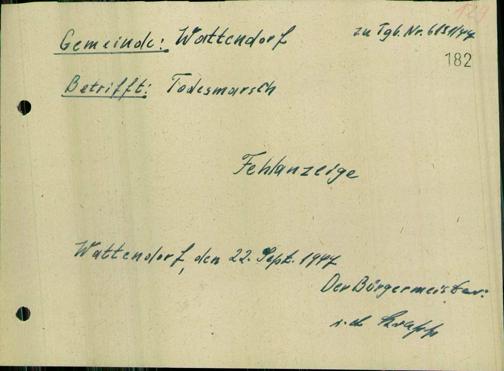 Gemeinde: Wattendorf
zu Tgb. Nr. 6151/47
182
Betrifft: Todesmarsch
Fehlanzeige
Wattendorf, den 22. Sept. 1947
Der Bürgermeister: